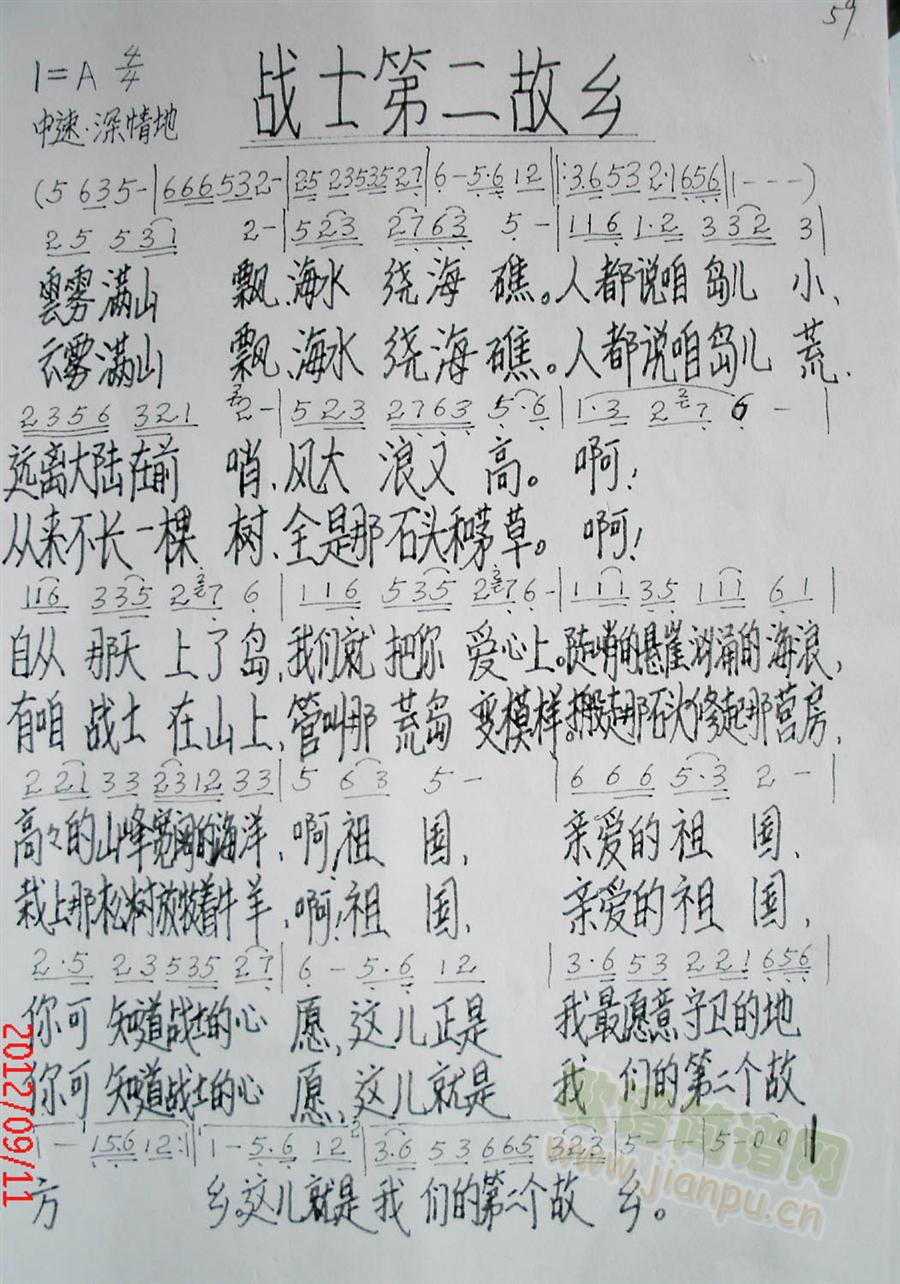 59
战士第二故乡
1=A 4/4
中速·深情地
(5 635-|666532-|25 2353527|6-5·6 12‖:3·6532·1656|1---)
25 531 2-|523 2763 5-|116 1·2 332 3|
雲雾满山 飘、海水 绕海 礁。人都说咱岛儿 小、
云雾满山 飘、海水绕海礁。人都说咱岛儿 荒.
2356 321 2-|523 2763 5·6|1·3 27 6-|
远离大陆在前 哨、风大 浪又 高。 啊!
从来不长一棵 树、全是那石头和茅草。 啊!
116 335 27 6|116 535 276-|111 35 111 61|
自从 那天 上了岛、我们就 把你 爱心上。陡峭的悬崖汹涌的海浪,
有咱 战士 在山上、管叫那 荒岛 变模样。搬走那石头修起那营房、
221 33 2312 33|5 63 5- 666 5·3 2-|
高々的山峰宽阔的海洋、啊!祖 国, 亲爱的祖 国、
栽上那松树放牧着牛羊、啊!祖 国, 亲爱的祖 国、
2·5 23535 27|6-5·6 12 |3·6 53 221 656|
你可 知道战士的心 愿、这儿正是 我最愿意守卫的地
你可 知道战士的心 愿、这儿就是 我 们的第二个故
1- 156 12:‖1-5·6 12|3·6 53665 323|5--|5-00‖
方 乡。这儿就是我 们的第二个故 乡。
2012/09/11
歌谱简谱网
www.jianpu.cn